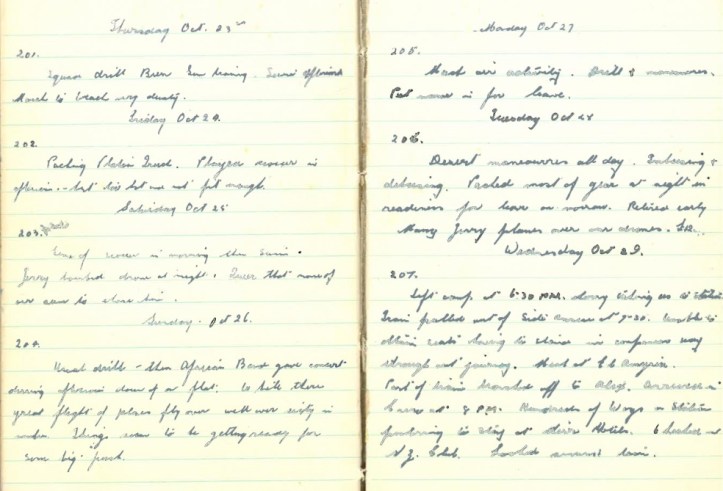 Thursday Oct. 23rd
201.
Squad drill Bren Gun training.
March to beach very dusty.
Friday Oct 24.
202
Packing Platoon Truck. Played soccer in
afternoon
Saturday Oct 25
203.
Game of soccer in morning then swim.
Jerry bombed drome at night. Queer that none of
our
Sunday. Oct 26.
204.
Usual drill - then African Band gave concert
during afternoon
great flight of planes fly over well over sixty in
number. Things seem to be getting ready for
some big push.
Monday Oct 27
205.
Much air activity. Drill & manoeuvres.
Put name in for leave.
Tuesday Oct 28
206.
Desert manoeuvres all day. Embussing &
debussing. Packed most of gear at night in
readiness for leave on morrow. Retired early
Many Jerry planes over our dromes.
Wednesday Oct 29.
207.
Left camp at 6.30 A.M. Lorry taking us to station
Train pulled out of Sidi at 9-30. Unable to
obtain seats having to stand in
throughout journey. Halt at El Amyria.
Part of train branched off to Alex. Arrived in
Cairo at 8 P.M. Hundreds of Wogs on Station
at their Hotels. I booked in
N.Z. Club. Looked around town.